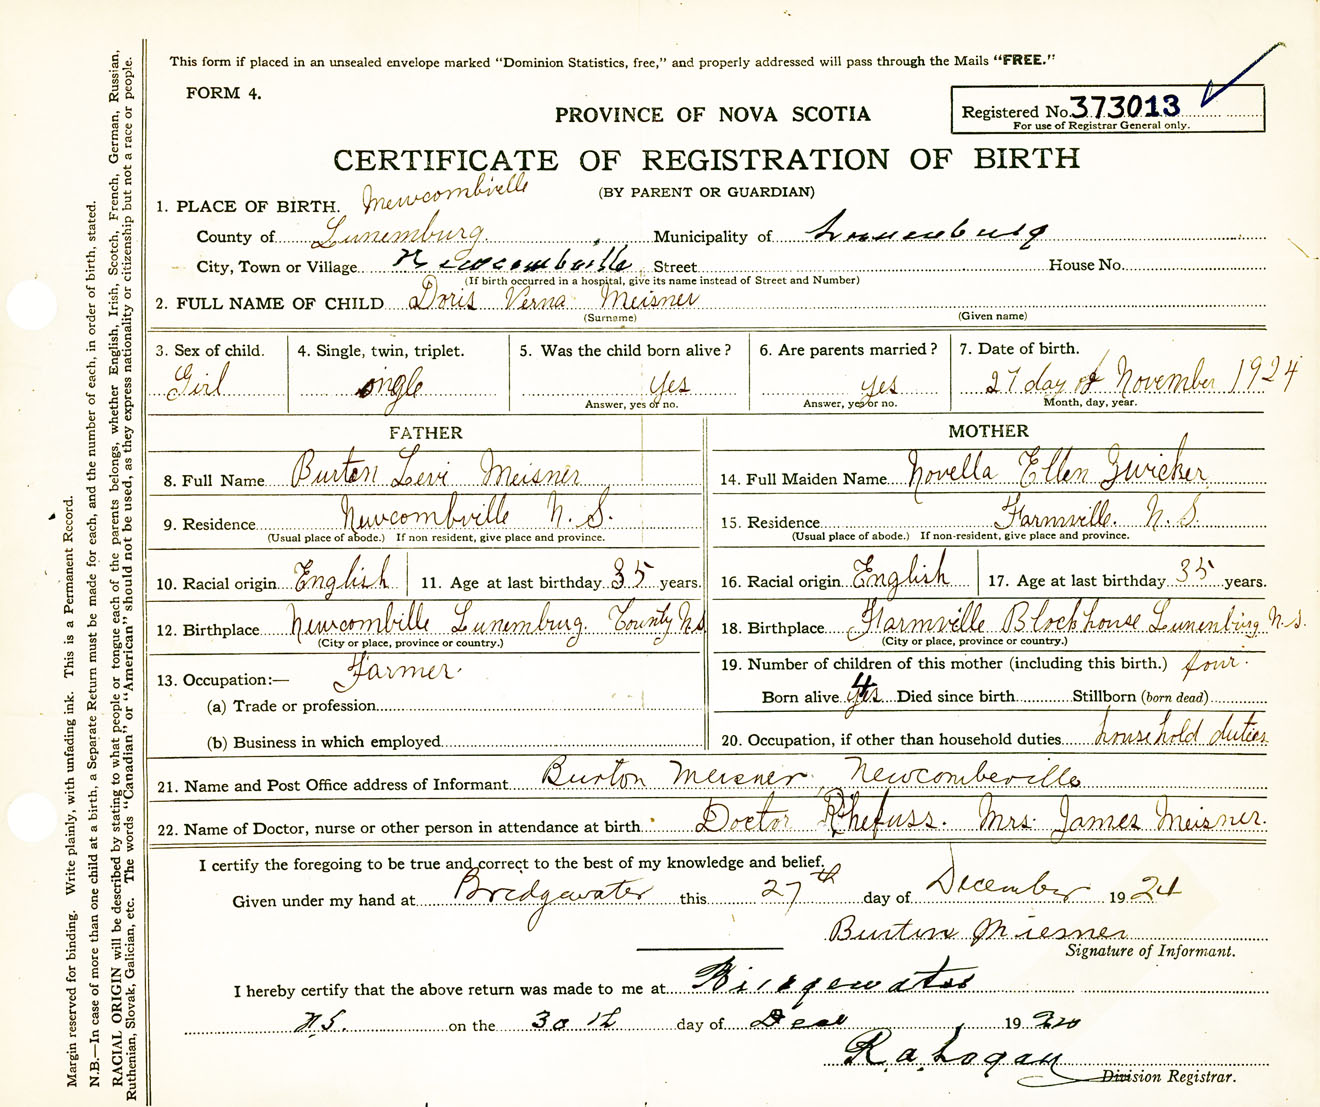 This form if placed in an unsealed envelope marked "Dominion Statistics, free," and properly addressed will pass through the Mails "FREE."
FORM 4.
PROVINCE OF NOVA SCOTIA
Registered No. 373013
For use of Registrar General only.
CERTIFICATE OF REGISTRATION OF BIRTH
(BY PARENT OR GUARDIAN)
1. PLACE OF BIRTH. Newcombville
County of Lunemburg Municipality of Lunenburg
City, Town or Village Newcombville Street House No.
(If birth occurred in a hospital, give its name instead of Street and Number)
2. FULL NAME OF CHILD Doris Verna Meisner
(Surname) (Given name)
3. Sex of child. 4. Single, twin, triplet. 5. Was the child born alive? 6. Are parents married? 7. Date of birth.
Girl single yes yes 27 day of November 1924
Answer, yes or no. Answer, yes or no. Month, day, year.
FATHER MOTHER
8. Full Name Burten Levi Meisner 14. Full Maiden Name Novella Ellen Zwicker
9. Residence Newcombville N. S. 15. Residence Farmville. N. S.
(Usual place of abode.) If non resident, give place and province. (Usual place of abode.) If non-resident, give place and province.
10. Racial origin English 11. Age at last birthday 35 years. 16. Racial origin English 17. Age at last birthday 35 years.
12. Birthplace Newcombville Lunemburg County N.S 18. Birthplace Farmville Blockhouse Lunenburg N.S.
(City or place, province or country.) (City or place, province or country.)
13. Occupation:— Farmer. 19. Number of children of this mother (including this birth.) four.
(a) Trade or profession Born alive yes 4 Died since birth Stillborn (born dead)
(b) Business in which employed 20. Occupation, if other than household duties household duties
21. Name and Post Office address of Informant Burton Meisner, Newcombeville
22. Name of Doctor, nurse or other person in attendance at birth Doctor Rhefuss. Mrs. James Meisner.
I certify the foregoing to be true and correct to the best of my knowledge and belief.
Given under my hand at Bridgewater this 27th day of December 1924
Burton Miesner
Signature of Informant.
I hereby certify that the above return was made to me at Bridgewater
N.S. on the 30th day of Dec 19
R. A. Logan
Division Registrar.
Margin reserved for binding. Write plainly, with unfading ink. This is a Permanent Record.
N.B.—In case of more than one child at a birth, a Separate Return must be made for each, and the number of each, in order of birth, stated.
RACIAL ORIGIN will be described by stating to what people or tongue each of the parents belongs, whether English, Irish, Scotch, French, German, Russian,
Ruthenian, Slovak, Galician, etc. The words "Canadian" or "American" should not be used, as they express nationality or citizenship but not a race or people.